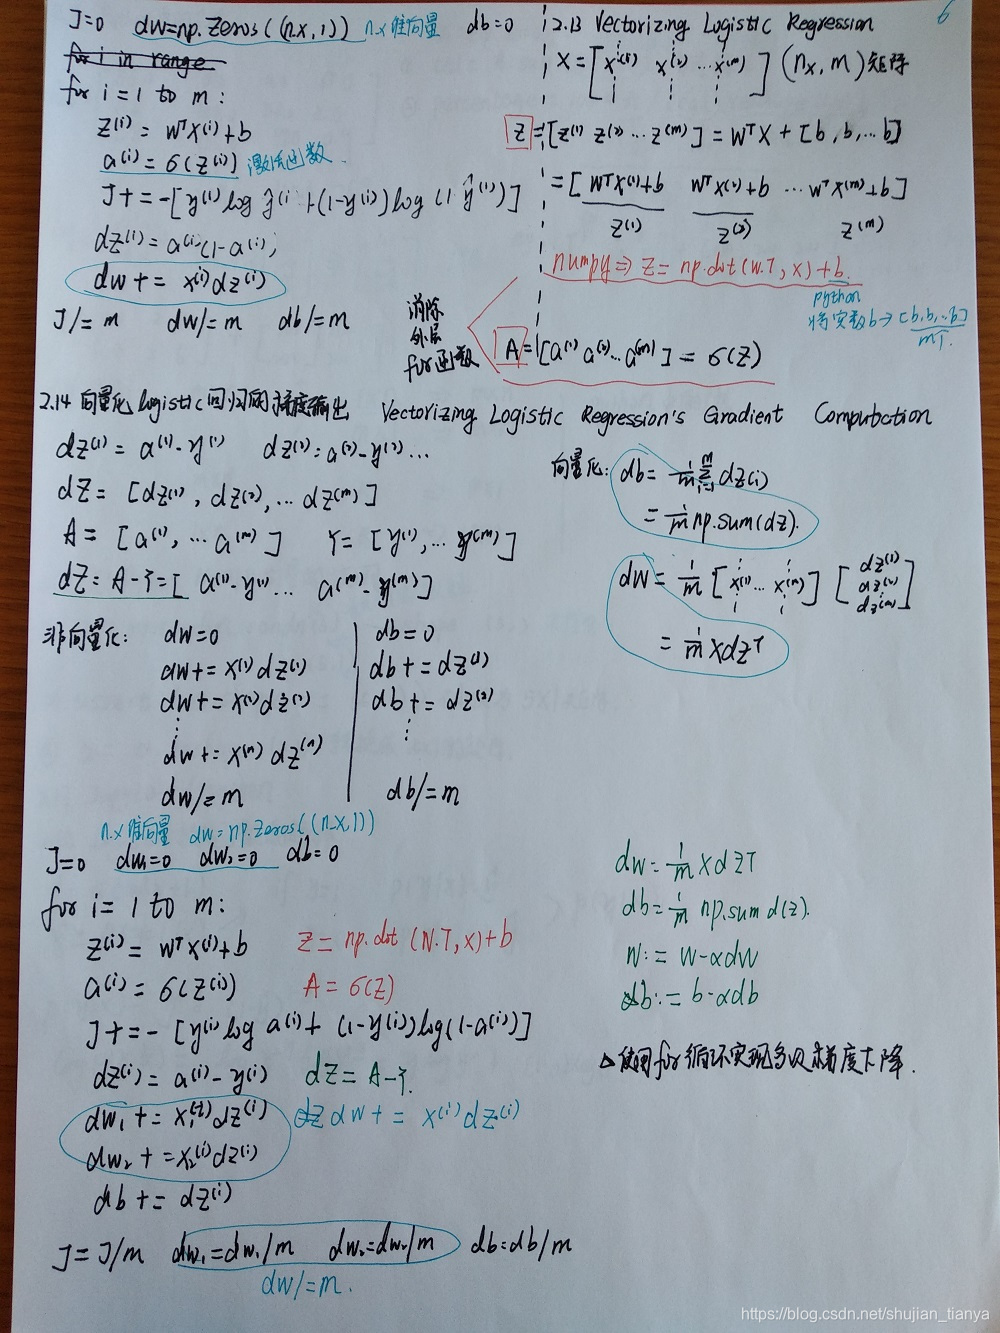 J=0 dw=np.zeros((n.x,1)) n.x 维向量 db=0
for i in range
for i = 1 to m:
z⁽ⁱ⁾ = wᵀx⁽ⁱ⁾+b
a⁽ⁱ⁾ = σ(z⁽ⁱ⁾) 激活函数
J += -[y⁽ⁱ⁾ log ŷ⁽ⁱ +(1-y⁽ⁱ⁾) log (1-ŷ⁽ⁱ⁾)]
dz⁽ⁱ⁾ = a⁽ⁱ⁾(1-a⁽ⁱ⁾)
dw += x⁽ⁱ⁾dz⁽ⁱ⁾
J/=m dw/=m db/=m
消除
外层
for函数
6
2.13 Vectorizing Logistic Regression
X = [x⁽¹⁾ x⁽²⁾ ... x⁽ᵐ⁾] (nx, m) 矩阵
Z=[z⁽¹⁾ z⁽²⁾ ... z⁽ᵐ⁾] = wᵀX + [b, b, ... b]
= [wᵀx⁽¹⁾+b wᵀx⁽²⁾+b ... wᵀx⁽ᵐ⁾+b]
z⁽¹⁾ z⁽²⁾ z⁽ᵐ⁾
numpy ⇒ Z = np.dot(w.T, x)+b
python
将实数b → [b,b,..b]
m个.
A = [a⁽¹⁾ a⁽²⁾... a⁽ᵐ⁾] = σ(Z)
2.14 向量化 logistic 回归的梯度输出 Vectorizing Logistic Regression's Gradient Computation
dz⁽¹⁾ = a⁽¹⁾-y⁽¹⁾ dz⁽²⁾ = a⁽²⁾-y⁽²⁾ ...
dZ = [dz⁽¹⁾, dz⁽²⁾, ... dz⁽ᵐ⁾]
A = [a⁽¹⁾, ... a⁽ᵐ⁾] Y = [y⁽¹⁾, ... y⁽ᵐ⁾]
dZ = A-Y = [a⁽¹⁾-y⁽¹⁾ ... a⁽ᵐ⁾-y⁽ᵐ⁾]
向量化: db = 1/m Σᵢ₌₁ᵐ dz(i)
= 1/m np.sum(dz).
dw = 1/m [x⁽¹⁾ ... x⁽ᵐ⁾] [dz⁽¹⁾ dz⁽²⁾ dz⁽ᵐ⁾]
= 1/m XdzT
非向量化: dw=0 db=0
dw+= x⁽¹⁾dz⁽¹⁾ db+=dz⁽¹⁾
dw+= x⁽²⁾dz⁽²⁾ db+= dz⁽²⁾
⋮ ⋮
dw+= x⁽ᵐ⁾dz⁽ᵐ⁾
dw/=m db/=m
n.x 维向量 dw=np.zeros((n.x,1))
J=0 dw₁=0 dw₂=0 db=0
for i = 1 to m:
z⁽ⁱ⁾ = wᵀx⁽ⁱ⁾+b z = np.dot (w.T, x)+b
a⁽ⁱ⁾ = σ(z⁽ⁱ⁾) A = σ(z)
J += - [y⁽ⁱ⁾ log a⁽ⁱ⁾ + (1-y⁽ⁱ⁾)log(1-a⁽ⁱ⁾)]
dz⁽ⁱ⁾ = a⁽ⁱ⁾-y⁽ⁱ⁾ dz = A-Y.
dw₁ += x₁⁽ⁱ⁾dz⁽ⁱ⁾ dw += x⁽ⁱ⁾dz⁽ⁱ⁾
dw₂ += x₂⁽ⁱ⁾dz⁽ⁱ⁾
db += dz⁽ⁱ⁾
J = J/m dw₁=dw₁/m dw₂=dw₂/m db=db/m
dw/=m.
dw = 1/m XdzT
db = 1/m np.sum d(z).
w := w-αdw
b := b-αdb
△使用for循环实现多次梯度下降.
https://blog.csdn.net/shujian_tianya